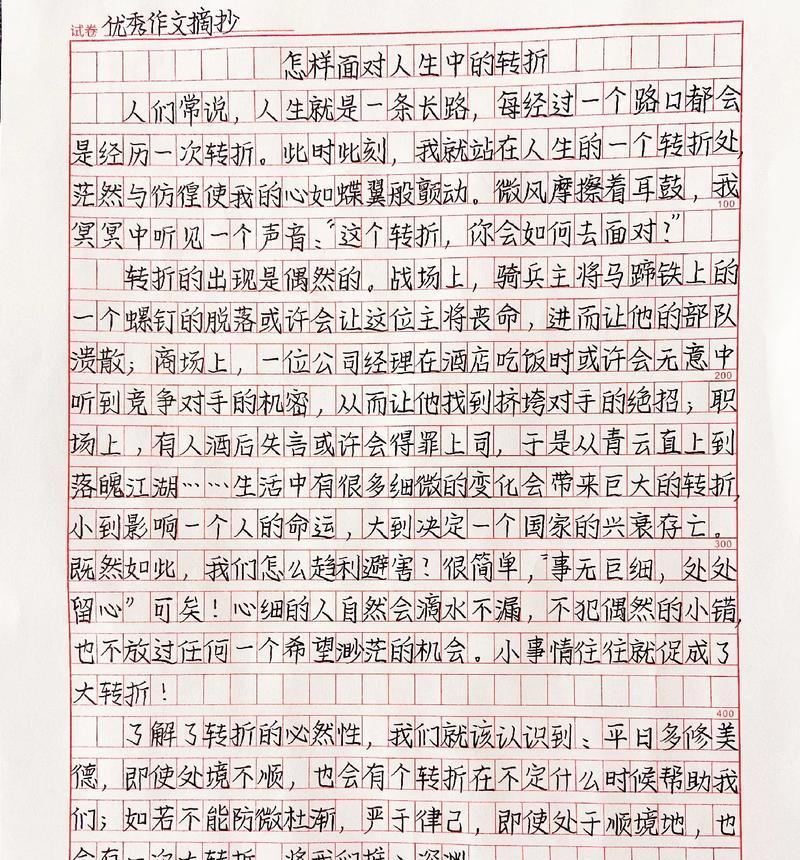 试卷 优秀作文摘抄
怎样面对人生中的转折
人们常说，人生就是一条长路，每经过一个路口都会
是经历一次转折。此时此刻，我就站在人生的一个转折处，
茫然与彷徨使我的心如蝶翼般颤动。微风摩擦着耳鼓，我
100
冥冥中听见一个声音：“这个转折，你会如何去面对？”
转折的出现是偶然的。战场上，骑兵主将马蹄铁上的
一个螺钉的脱落或许会让这位主将丧命，进而让他的部队
溃散；商场上，一位公司经理在酒店吃饭时或许会无意中
200
听到竞争对手的机密，从而让他找到挤垮对手的绝招；职
场上，有人酒后失言或许会得罪上司，于是从青云直上到
落魄江湖……生活中有很多细微的变化会带来巨大的转折，
小到影响一个人的命运，大到决定一个国家的兴衰存亡。
300
既然如此，我们怎么趋利避害？很简单，“事无巨细，处处
留心”可矣！心细的人自然会滴水不漏，不犯偶然的小错，
也不放过任何一个希望渺茫的机会。小事情往往就促成了
大转折！
400
了解了转折的必然性，我们就该认识到：平日多修美
德，即使处境不顺，也会有个转折在不定什么时候帮助我
们；如若不能防微杜渐，严于律己，即使处于顺境地，也
会有一次大转折，将我们推入深渊